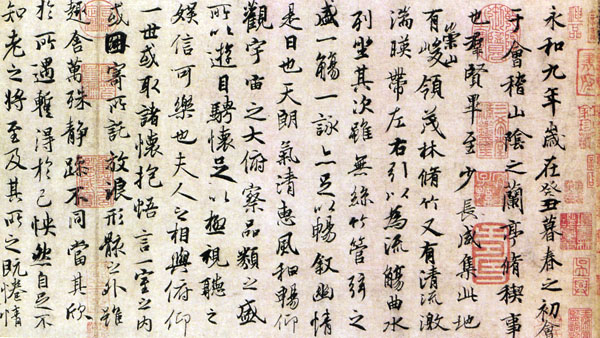 永和九年歲在癸丑暮春之初會
于會稽山陰之蘭亭脩稧事
也羣賢畢至少長咸集此地
有崇山峻領茂林脩竹又有清流激
湍暎帶左右引以為流觴曲水
列坐其次雖無絲竹管弦之
盛一觴一詠亦足以暢敘幽情
是日也天朗氣清惠風和暢仰
觀宇宙之大俯察品類之盛
所以遊目騁懷足以極視聽之
娛信可樂也夫人之相與俯仰
一世或取諸懷抱悟言一室之內
或因寄所託放浪形骸之外雖
趣舍萬殊靜躁不同當其欣
於所遇蹔得於己怏然自足不
知老之將至及其所之既惓情